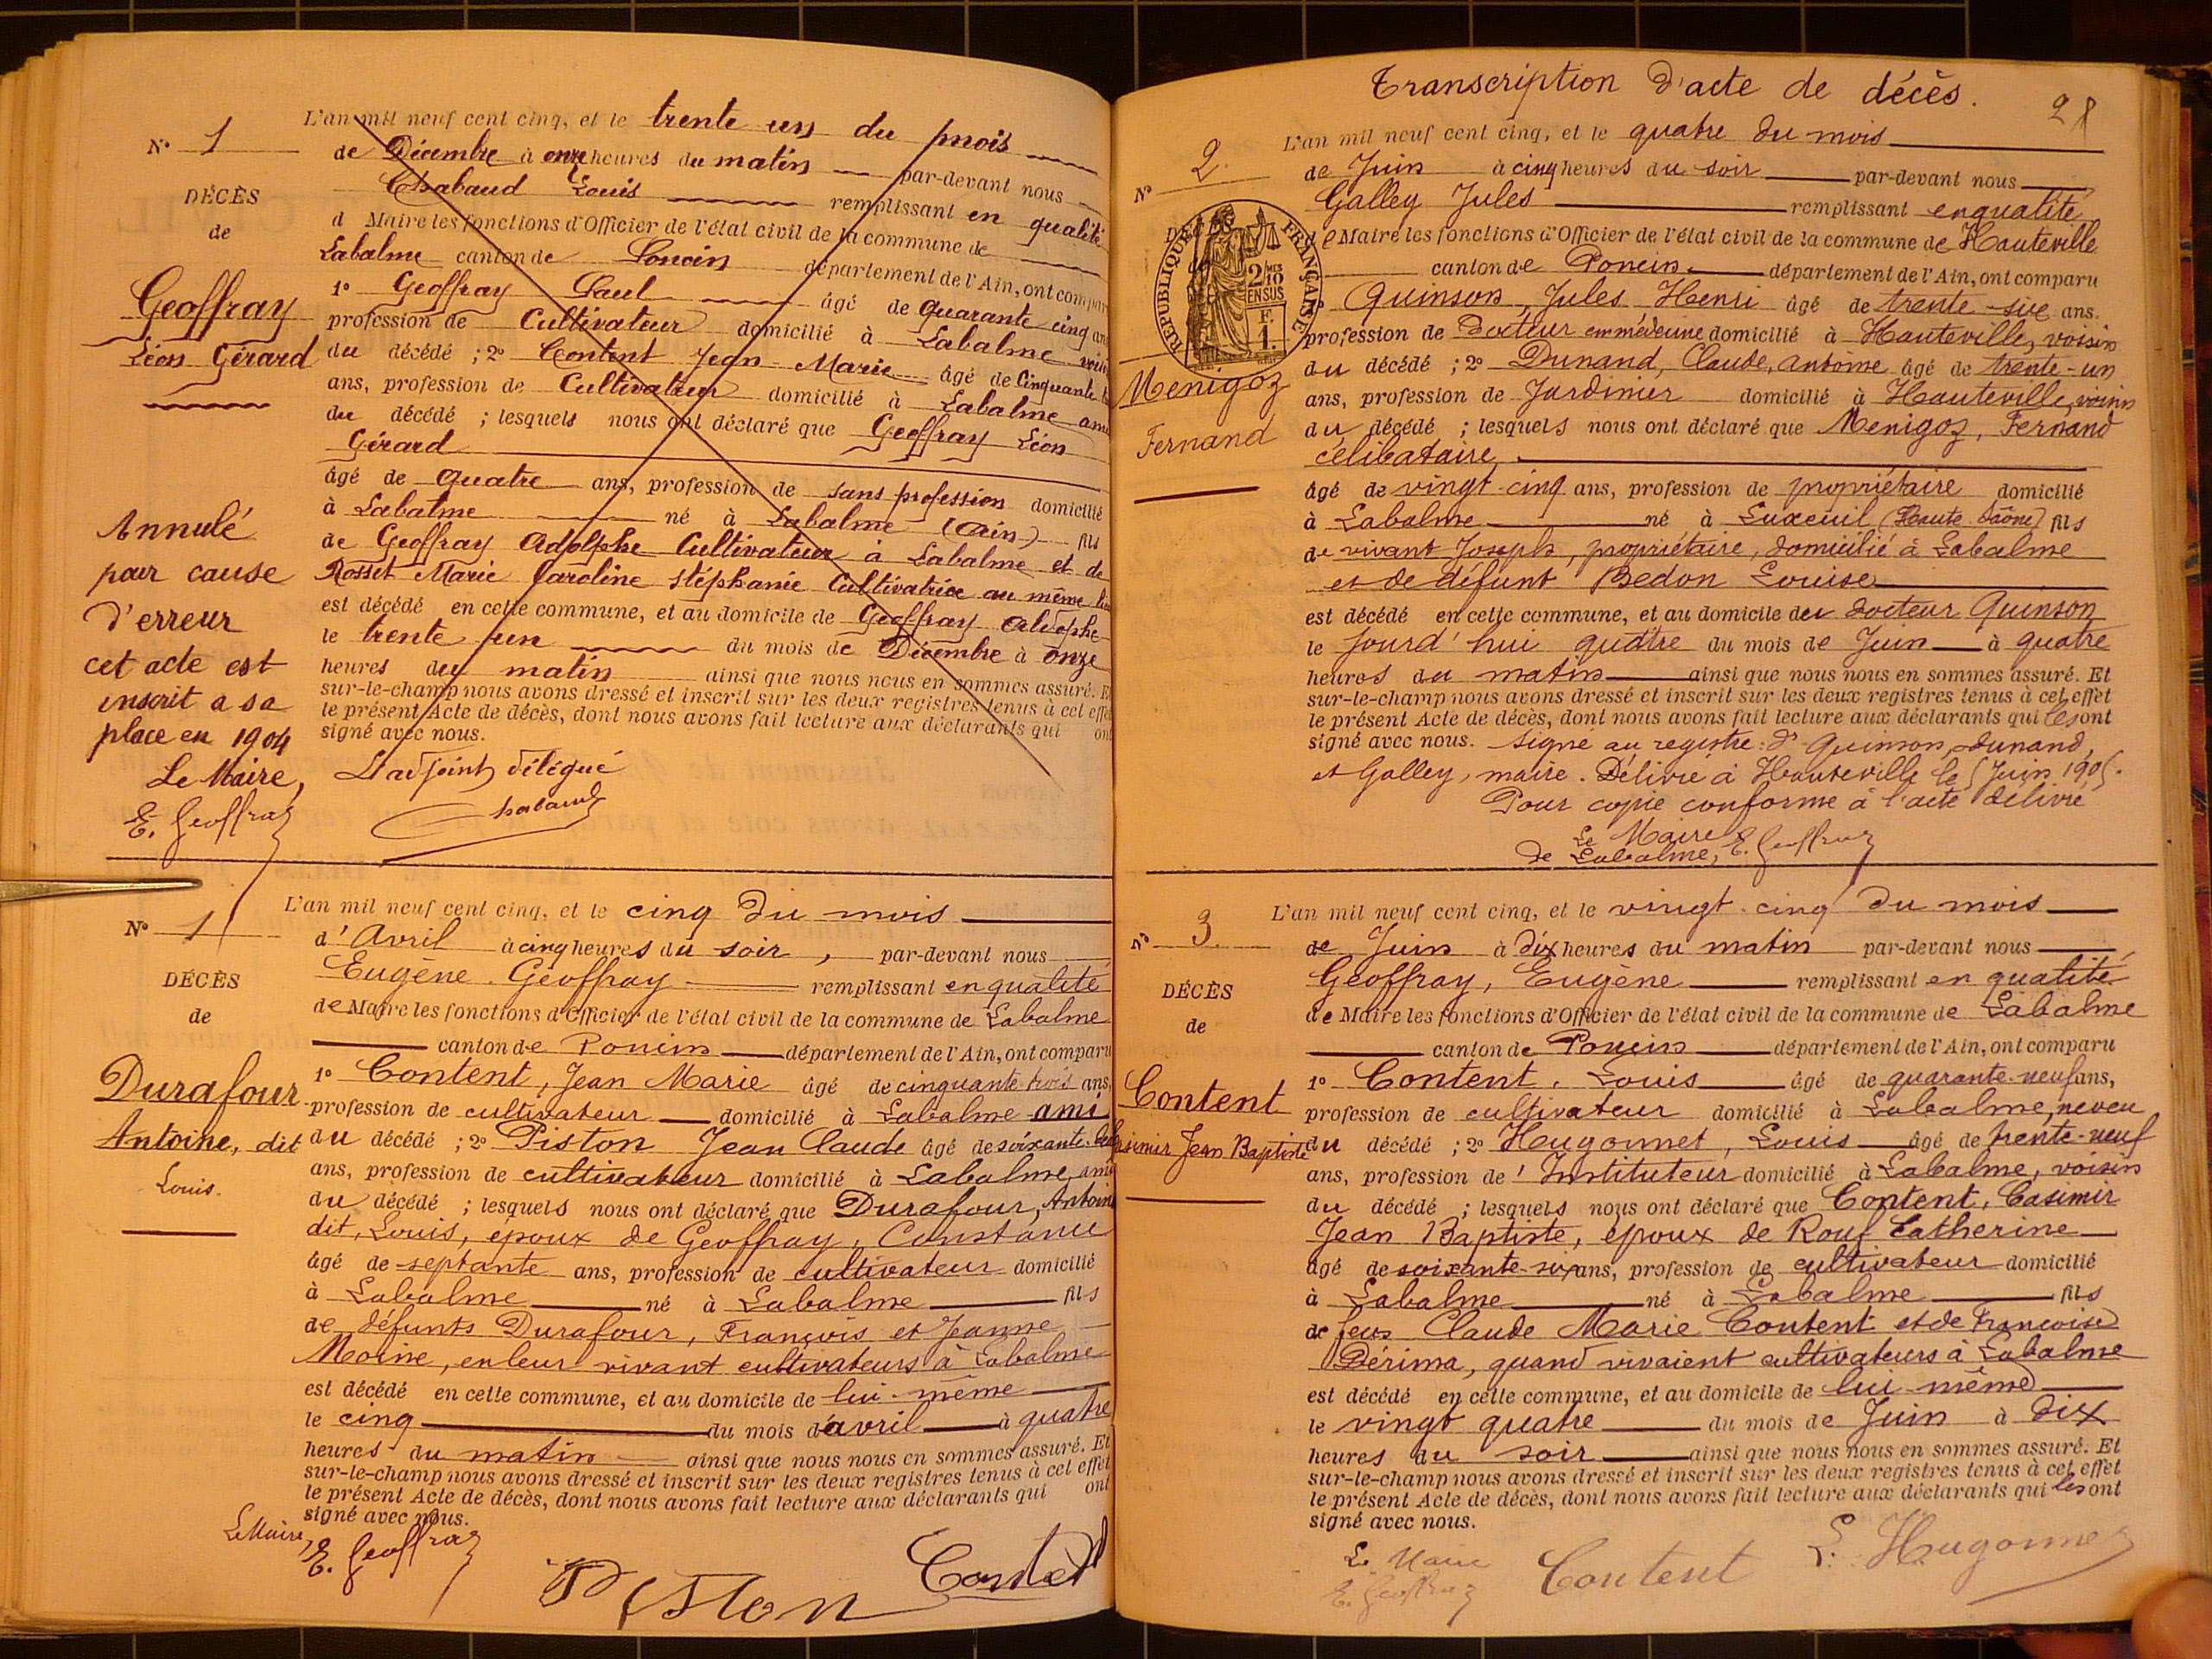 N° 1
DÉCÈS
de
Geoffray
Léon Gérard
Annulé
pour cause
d'erreur
cet acte est
inscrit a sa
place en 1904
Le Maire,
E. Geoffray
L'an mil neuf cent cinq, et le trente un du mois
de Décembre à onze heures du matin par-devant nous
Chabaud Louis remplissant en qualité
d Maire les fonctions d'Officier de l'état civil de la commune de
Labalme canton de Poncin département de l'Ain, ont comparu
1° Geoffray Paul âgé de quarante cinq ans
profession de Cultivateur domicilié à Labalme voisin
du décédé ; 2° Content Jean-Marie âgé de Cinquante
ans, profession de Cultivateur domicilié à Labalme ami
du décédé ; lesquels nous ont déclaré que Geoffray Léon
Gérard
âgé de quatre ans, profession de sans profession domicilié
à Labalme né à Labalme (Ain) fils
de Geoffray Adolphe Cultivateur à Labalme et de
Rosset Marie Caroline Stéphanie Cultivatrice au même lieu
est décédé en cette commune, et au domicile de Geoffray Aldophe
le trente un du mois de Décembre à onze
heures du matin ainsi que nous nous en sommes assuré. Et
sur-le-champ nous avons dressé et inscrit sur les deux registres tenus à cet effet
le présent Acte de décès, dont nous avons fait lecture aux déclarants qui ont
signé avec nous.
L'adjoint délégué
Chabaud
N° 1
DÉCÈS
de
Durafour
Antoine, dit
Louis.
L'an mil neuf cent cinq, et le cinq du mois
d'Avril à cinq heures du soir, par-devant nous
Eugène Geoffray remplissant en qualité
de Maire les fonctions d'Officier de l'état civil de la commune de Labalme
canton de Poncin département de l'Ain, ont comparu
1° Content, Jean Marie âgé de cinquante-trois ans,
profession de cultivateur domicilié à Labalme ami
du décédé ; 2° Piston Jean Claude âgé de soixante
ans, profession de cultivateur domicilié à Labalme, ami
du décédé ; lesquels nous ont déclaré que Durafour, Antoine
dit, Louis, époux de Geoffray, Constance
âgé de septante ans, profession de cultivateur domicilié
à Labalme né à Labalme fils
de défunts Durafour, François et Jeanne
Moine, en leur vivant cultivateurs à Labalme
est décédé en cette commune, et au domicile de lui-même
le cinq du mois d'avril à quatre
heures du matin ainsi que nous nous en sommes assuré. Et
sur-le-champ nous avons dressé et inscrit sur les deux registres tenus à cet effet
le présent Acte de décès, dont nous avons fait lecture aux déclarants qui ont
signé avec nous.
Le Maire,
E. Geoffray
Piston
Content
Transcription d'acte de décès.
28
N° 2
RÉPUBLIQUE FRANÇAISE
2/10 EN SUS
F. 1.
Menigoz
Fernand
L'an mil neuf cent cinq, et le quatre du mois
de Juin à cinq heures du soir par-devant nous
Galley Jules remplissant en qualité
de Maire les fonctions d'Officier de l'état civil de la commune de Hauteville
canton de Poncin département de l'Ain, ont comparu
Quinson, Jules Henri âgé de trente-six ans.
profession de docteur en médecine domicilié à Hauteville, voisin
du décédé ; 2° Dunand, Claude, Antoine âgé de trente-un
ans, profession de Jardinier domicilié à Hauteville, voisin
du décédé ; lesquels nous ont déclaré que Menigoz, Fernand
célibataire,
âgé de vingt-cinq ans, profession de propriétaire domicilié
à Labalme né à Luxeuil (Haute Saône) fils
de vivant Joseph, propriétaire, domicilié à Labalme
et de défunt Bedon Louise
est décédé en cette commune, et au domicile du docteur Quinson
le jourd'hui quatre du mois de Juin à quatre
heures du matin ainsi que nous nous en sommes assuré. Et
sur-le-champ nous avons dressé et inscrit sur les deux registres tenus à cet effet
le présent Acte de décès, dont nous avons fait lecture aux déclarants qui les ont
signé avec nous. Signé au registre: Dr Quinson, Dunand,
et Galley, maire. Délivré à Hauteville le 5 Juin 1905.
Pour copie conforme à l'acte délivré
Le Maire
de Labalme, E. Geoffray
N° 3
DÉCÈS
de
Content
Casimir Jean Baptiste
L'an mil neuf cent cinq, et le vingt-cinq du mois
de Juin à dix heures du matin par-devant nous
Geoffray, Eugène remplissant en qualité
de Maire les fonctions d'Officier de l'état civil de la commune de Labalme
canton de Poncin département de l'Ain, ont comparu
1° Content, Louis âgé de quarante-neuf ans,
profession de cultivateur domicilié à Labalme, neveu
du décédé ; 2° Hugonnet, Louis âgé de trente-neuf
ans, profession de Instituteur domicilié à Labalme, voisin
du décédé ; lesquels nous ont déclaré que Content, Casimir
Jean Baptiste, époux de Rouf Catherine
âgé de soixante-six ans, profession de cultivateur domicilié
à Labalme né à Labalme fils
de feus Claude Marie Content et de Françoise
Dérima, quand vivaient cultivateurs à Labalme
est décédé en cette commune, et au domicile de lui-même
le vingt quatre du mois de Juin à dix
heures du soir ainsi que nous nous en sommes assuré. Et
sur-le-champ nous avons dressé et inscrit sur les deux registres tenus à cet effet
le présent Acte de décès, dont nous avons fait lecture aux déclarants qui les ont
signé avec nous.
Le Maire
E. Geoffray
Content
L. Hugonnet